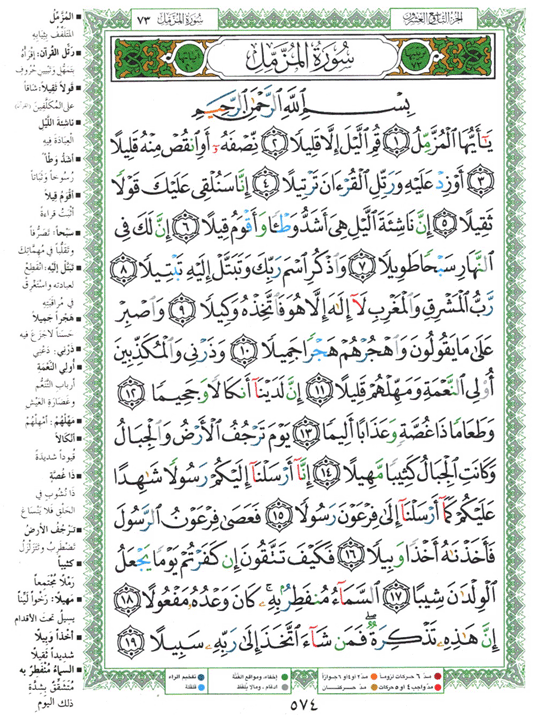 الجزء التاسع والعشرون
سورة المزمل ٧٣
سُورَةُ المُزَّمِّل
بِسْمِ اللَّهِ الرَّحْمَٰنِ الرَّحِيمِ
يَٰٓأَيُّهَا ٱلْمُزَّمِّلُ ١ قُمِ ٱلَّيْلَ إِلَّا قَلِيلًا ٢ نِّصْفَهُۥٓ أَوِ ٱنقُصْ مِنْهُ قَلِيلًا
٣ أَوْ زِدْ عَلَيْهِ وَرَتِّلِ ٱلْقُرْءَانَ تَرْتِيلًا ٤ إِنَّا سَنُلْقِى عَلَيْكَ قَوْلًا
ثَقِيلًا ٥ إِنَّ نَاشِئَةَ ٱلَّيْلِ هِىَ أَشَدُّ وَطْـًٔا وَأَقْوَمُ قِيلًا ٦ إِنَّ لَكَ فِى
ٱلنَّهَارِ سَبْحًا طَوِيلًا ٧ وَٱذْكُرِ ٱسْمَ رَبِّكَ وَتَبَتَّلْ إِلَيْهِ تَبْتِيلًا ٨
رَّبُّ ٱلْمَشْرِقِ وَٱلْمَغْرِبِ لَآ إِلَٰهَ إِلَّا هُوَ فَٱتَّخِذْهُ وَكِيلًا ٩ وَٱصْبِرْ
عَلَىٰ مَا يَقُولُونَ وَٱهْجُرْهُمْ هَجْرًا جَمِيلًا ١٠ وَذَرْنِى وَٱلْمُكَذِّبِينَ
أُو۟لِى ٱلنَّعْمَةِ وَمَهِّلْهُمْ قَلِيلًا ١١ إِنَّ لَدَيْنَآ أَنكَالًا وَجَحِيمًا ١٢
وَطَعَامًا ذَا غُصَّةٍ وَعَذَابًا أَلِيمًا ١٣ يَوْمَ تَرْجُفُ ٱلْأَرْضُ وَٱلْجِبَالُ
وَكَانَتِ ٱلْجِبَالُ كَثِيبًا مَّهِيلًا ١٤ إِنَّآ أَرْسَلْنَآ إِلَيْكُمْ رَسُولًا شَٰهِدًا
عَلَيْكُمْ كَمَآ أَرْسَلْنَآ إِلَىٰ فِرْعَوْنَ رَسُولًا ١٥ فَعَصَىٰ فِرْعَوْنُ ٱلرَّسُولَ
فَأَخَذْنَٰهُ أَخْذًا وَبِيلًا ١٦ فَكَيْفَ تَتَّقُونَ إِن كَفَرْتُمْ يَوْمًا يَجْعَلُ
ٱلْوِلْدَٰنَ شِيبًا ١٧ ٱلسَّمَآءُ مُنفَطِرٌۢ بِهِۦ كَانَ وَعْدُهُۥ مَفْعُولًا ١٨
إِنَّ هَٰذِهِۦ تَذْكِرَةٌ فَمَن شَآءَ ٱتَّخَذَ إِلَىٰ رَبِّهِۦ سَبِيلًا ١٩
المُزَّمِّل
المتلفف بثيابه
رتل القرآن: اقرأه
بتمهل وتبيين حروف
قولاً ثقيلاً: شاقاً
على المكلفين
ناشئة الليل
العبادة فيه
أشد وطأ
رسوخاً وثباتاً
أقوم قيلاً
أثبت قراءة
سبحاً: تصرفاً
وتقلباً في مهماتك
تبتل إليه: انقطع
لعبادته واستغرق
في مراقبته
هجراً جميلاً
حسناً لا جزع فيه
ذرني: دعني
أولي النعمة
أرباب التنعم
وغضارة العيش
مهلهم: أمهلهم
أنكالاً
قيوداً شديدة
ذا غصة
ذا نشوب في
الحلق فلا ينساغ
ترجف الأرض
تضطرب وتتزلزل
كثيباً
رملاً مجتمعاً
مهيلاً: رخواً ليناً
يسيل تحت الأقدام
أخذاً وبيلاً
شديداً ثقيلاً
السماء منفطر به
متشقق بشدة
ذلك اليوم
مد ٦ حركات لزوماً
مد ٢ أو ٤ أو ٦ جوازاً
إخفاء، ومواقع الغنة
تفخيم الراء
مد واجب ٤ أو ٥ حركات
مد حركتان
ادغام، وما لا يلفظ
قلقلة
٥٧٤